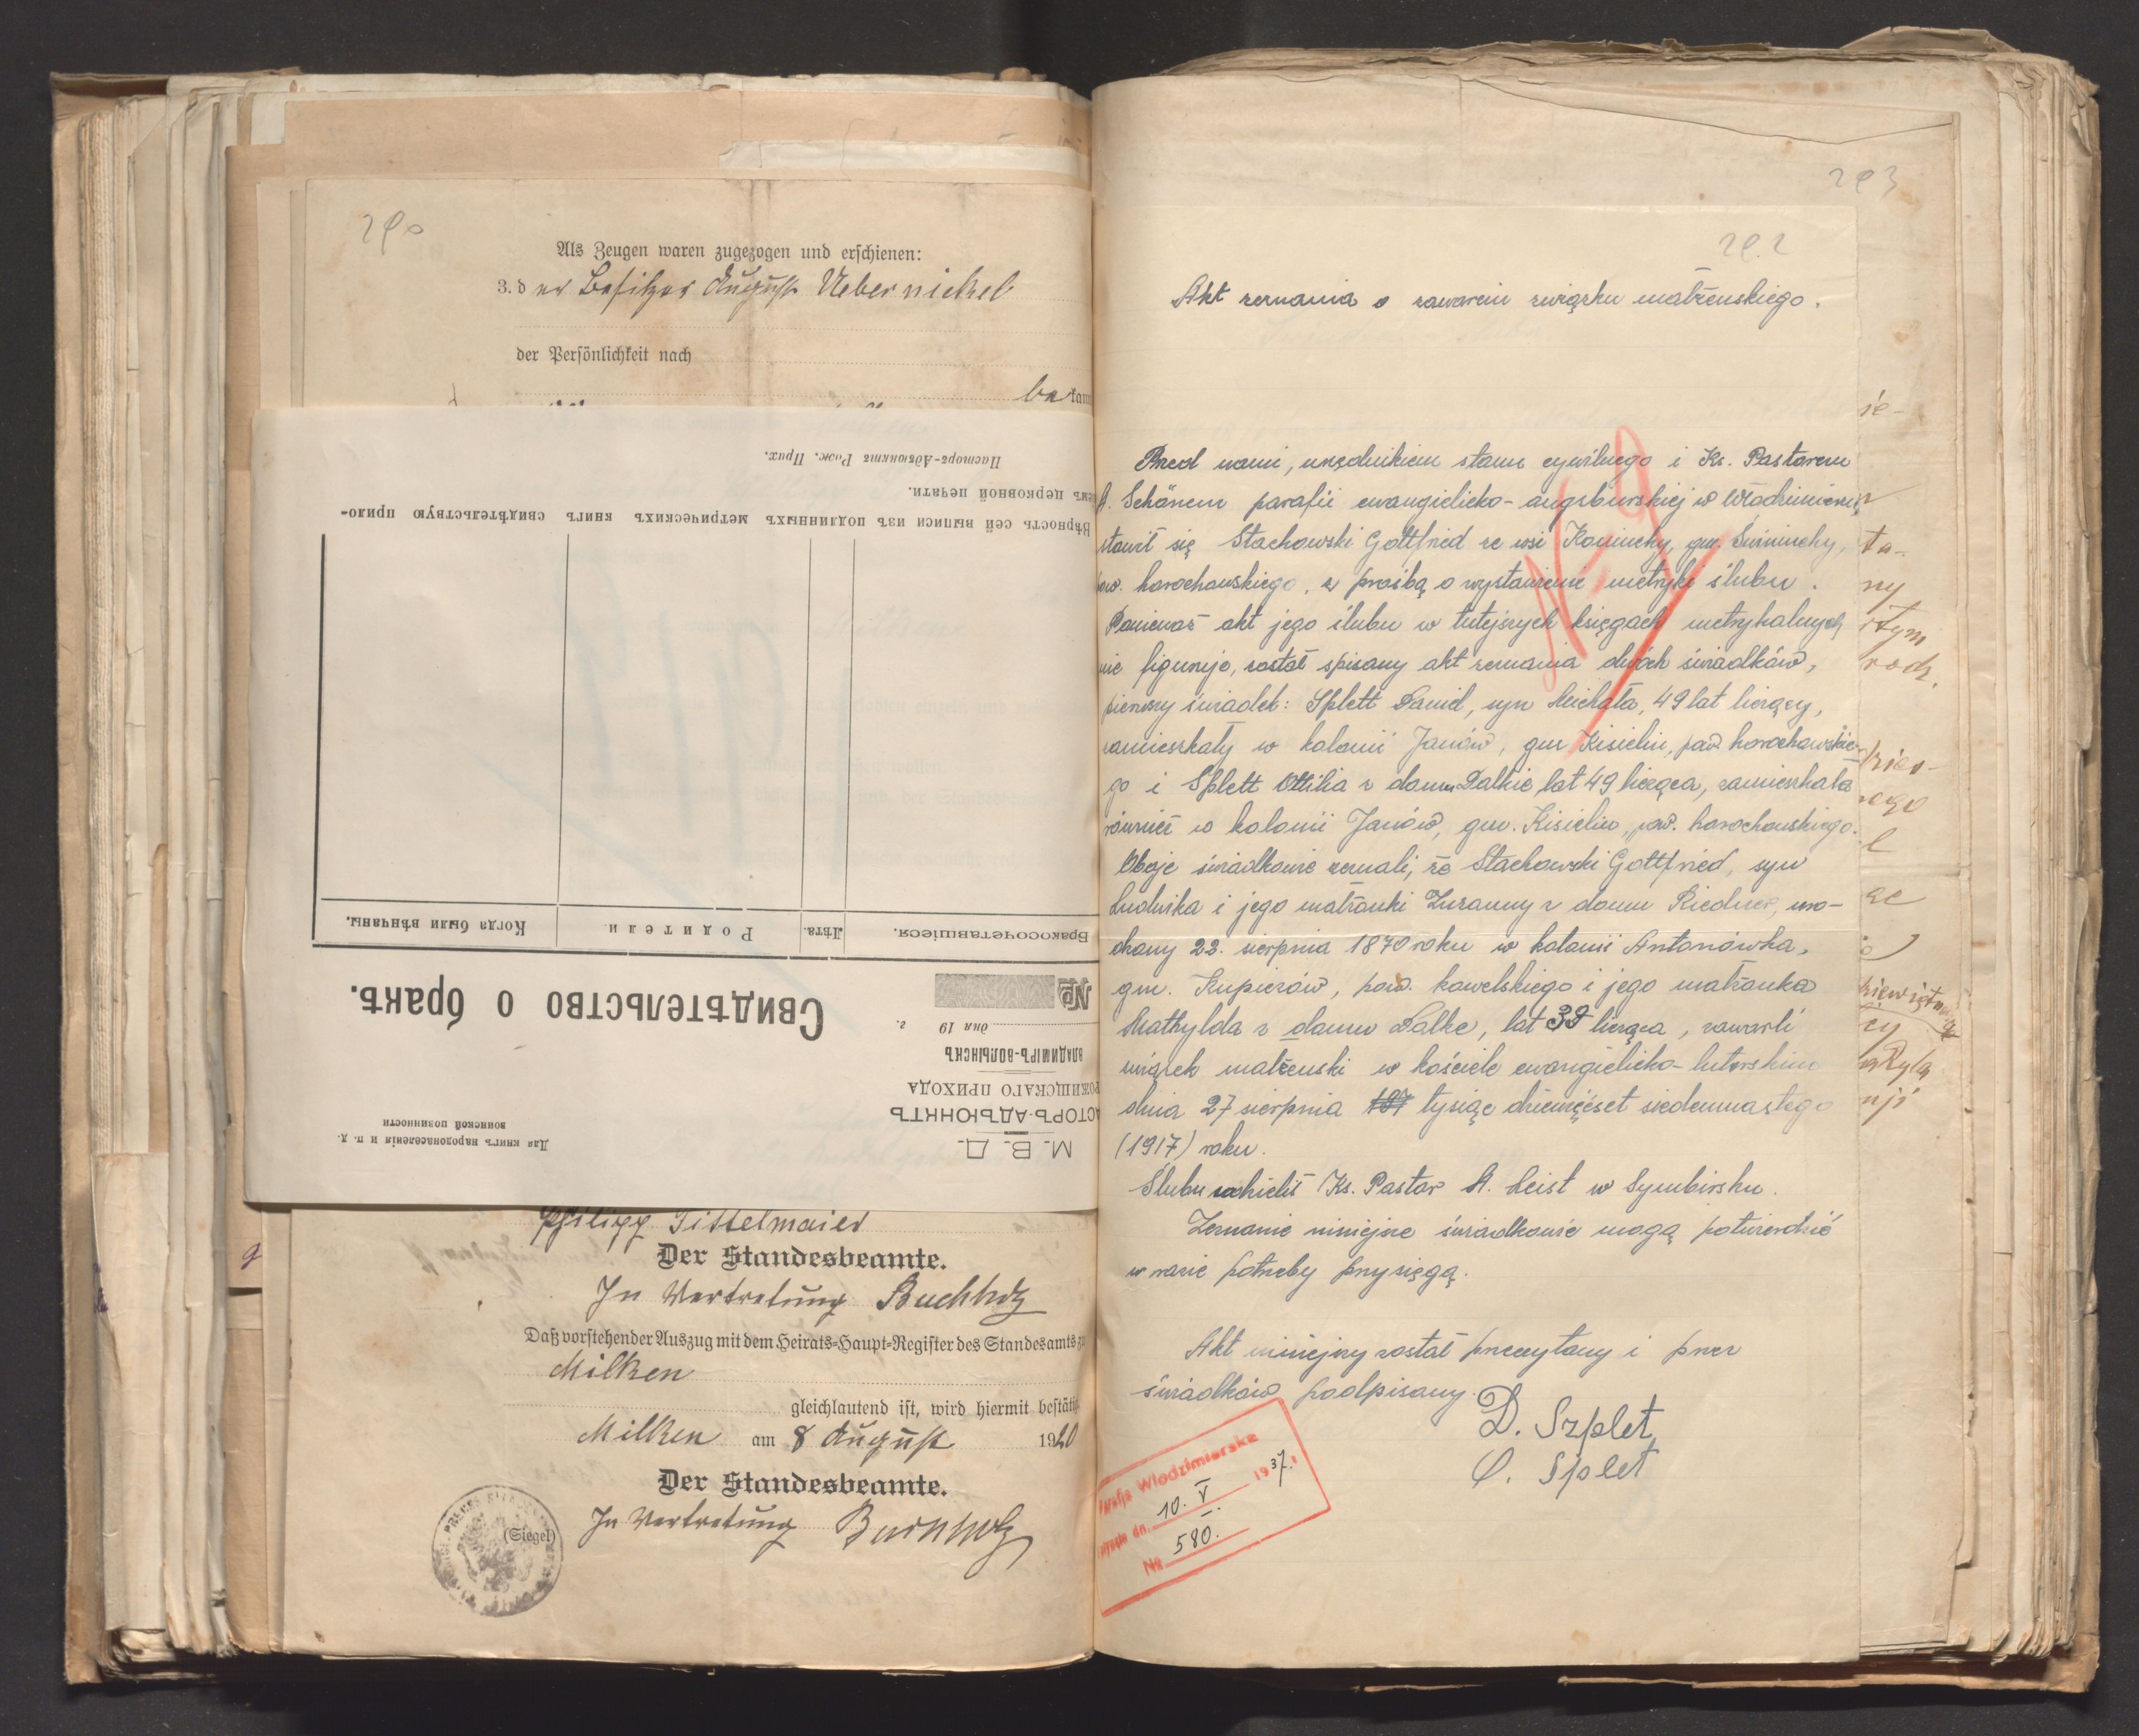 290
Als Zeugen waren zugezogen und erschienen:
3. der Besitzer August Uebernickel
der Persönlichkeit nach
bekann
Для книгъ народонаселенія и п. д.
воинской повинности
М. В. Д.
АСТОРЪ-АДЪЮНКТЪ
РОЖИЩСКАГО ПРИХОДА
ВЛАДИМІРЪ-ВОЛЫНСКЪ
дня 19 г.
№
Свидѣтельство о бракѣ.
Бракосочетавшіеся. Лѣта. Родители. Когда были вѣнчаны.
Вѣрность сей выписи изъ подлинныхъ метрическихъ книгъ свидѣтельствую прило-
емъ церковной печати.
Пасторъ-Адъюнктъ Рож. Прих.
Philipp Tittelmaier
Der Standesbeamte.
In Vertretung Buchholz
Daß vorstehender Auszug mit dem Heirats-Haupt-Register des Standesamts zu
Milken
gleichlautend ist, wird hiermit bestätig
Milken am 8 August 1920
Der Standesbeamte.
(Siegel)
In Vertretung Buchholz
293
292
Akt zeznania o zawarciu związku małżeńskiego.
Przed nami, urzędnikiem stanu cywilnego i Ks. Pastorem
A. Schönem parafii ewangielicko-augsburskiej w Włodzimierzu,
stawił się Stachowski Gottfried ze wsi Koniuchy, gm. Świniuchy,
pow. horochowskiego, z prośbą o wystawienie metryki ślubu.
Ponieważ akt jego ślubu w tutejszych księgach metrykalnych
nie figuruje, został spisany akt zeznania dwóch świadków,
pierwszy świadek: Splett Dawid, syn Michała, 49 lat liczący,
zamieszkały w kolonii Janów, gm Kisielin, pow horochowskie-
go i Splett Ottilia z domu Dalkie lat 49 licząca, zamieszkała
również w kolonii Janów, gm. Kisielin, pow. horochowskiego.
Oboje świadkowie zeznali, że Stachowski Gottfried, syn
Ludwika i jego małżonki Zuzanny z domu Riedner, uro-
dzony 23. sierpnia 1870 roku w kolonii Antonówka,
gm. Kupiczów, pow. kowelskiego i jego małżonka
Mathylda z domu Dalke, lat 39 licząca, zawarli
związek małżeński w kościele ewangielicko-luterskim
dnia 27 sierpnia tysiąc dziewięćset siedemnastego
(1917) roku.
Ślubu udzielił Ks. Pastor A. Leist w Symbirsku.
Zeznanie niniejsze świadkowie mogą potwierdzić
w razie potrzeby przysięgą.
Akt niniejszy został przeczytany i przez
świadków podpisany.
D. Szplet
O. Splet
Parafja Włodzimierska
dn. 10. V. 1937.
No 580.
ny
rodz.